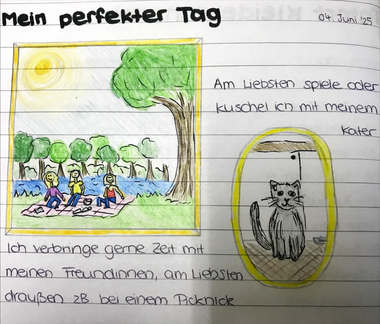 Mein perfekter Tag
04. Juni '25
Am Liebsten spiele oder
kuschel ich mit meinem
Kater
Ich verbringe gerne Zeit mit
meinen Freundinnen, am Liebsten
draußen zB bei einem Picknick